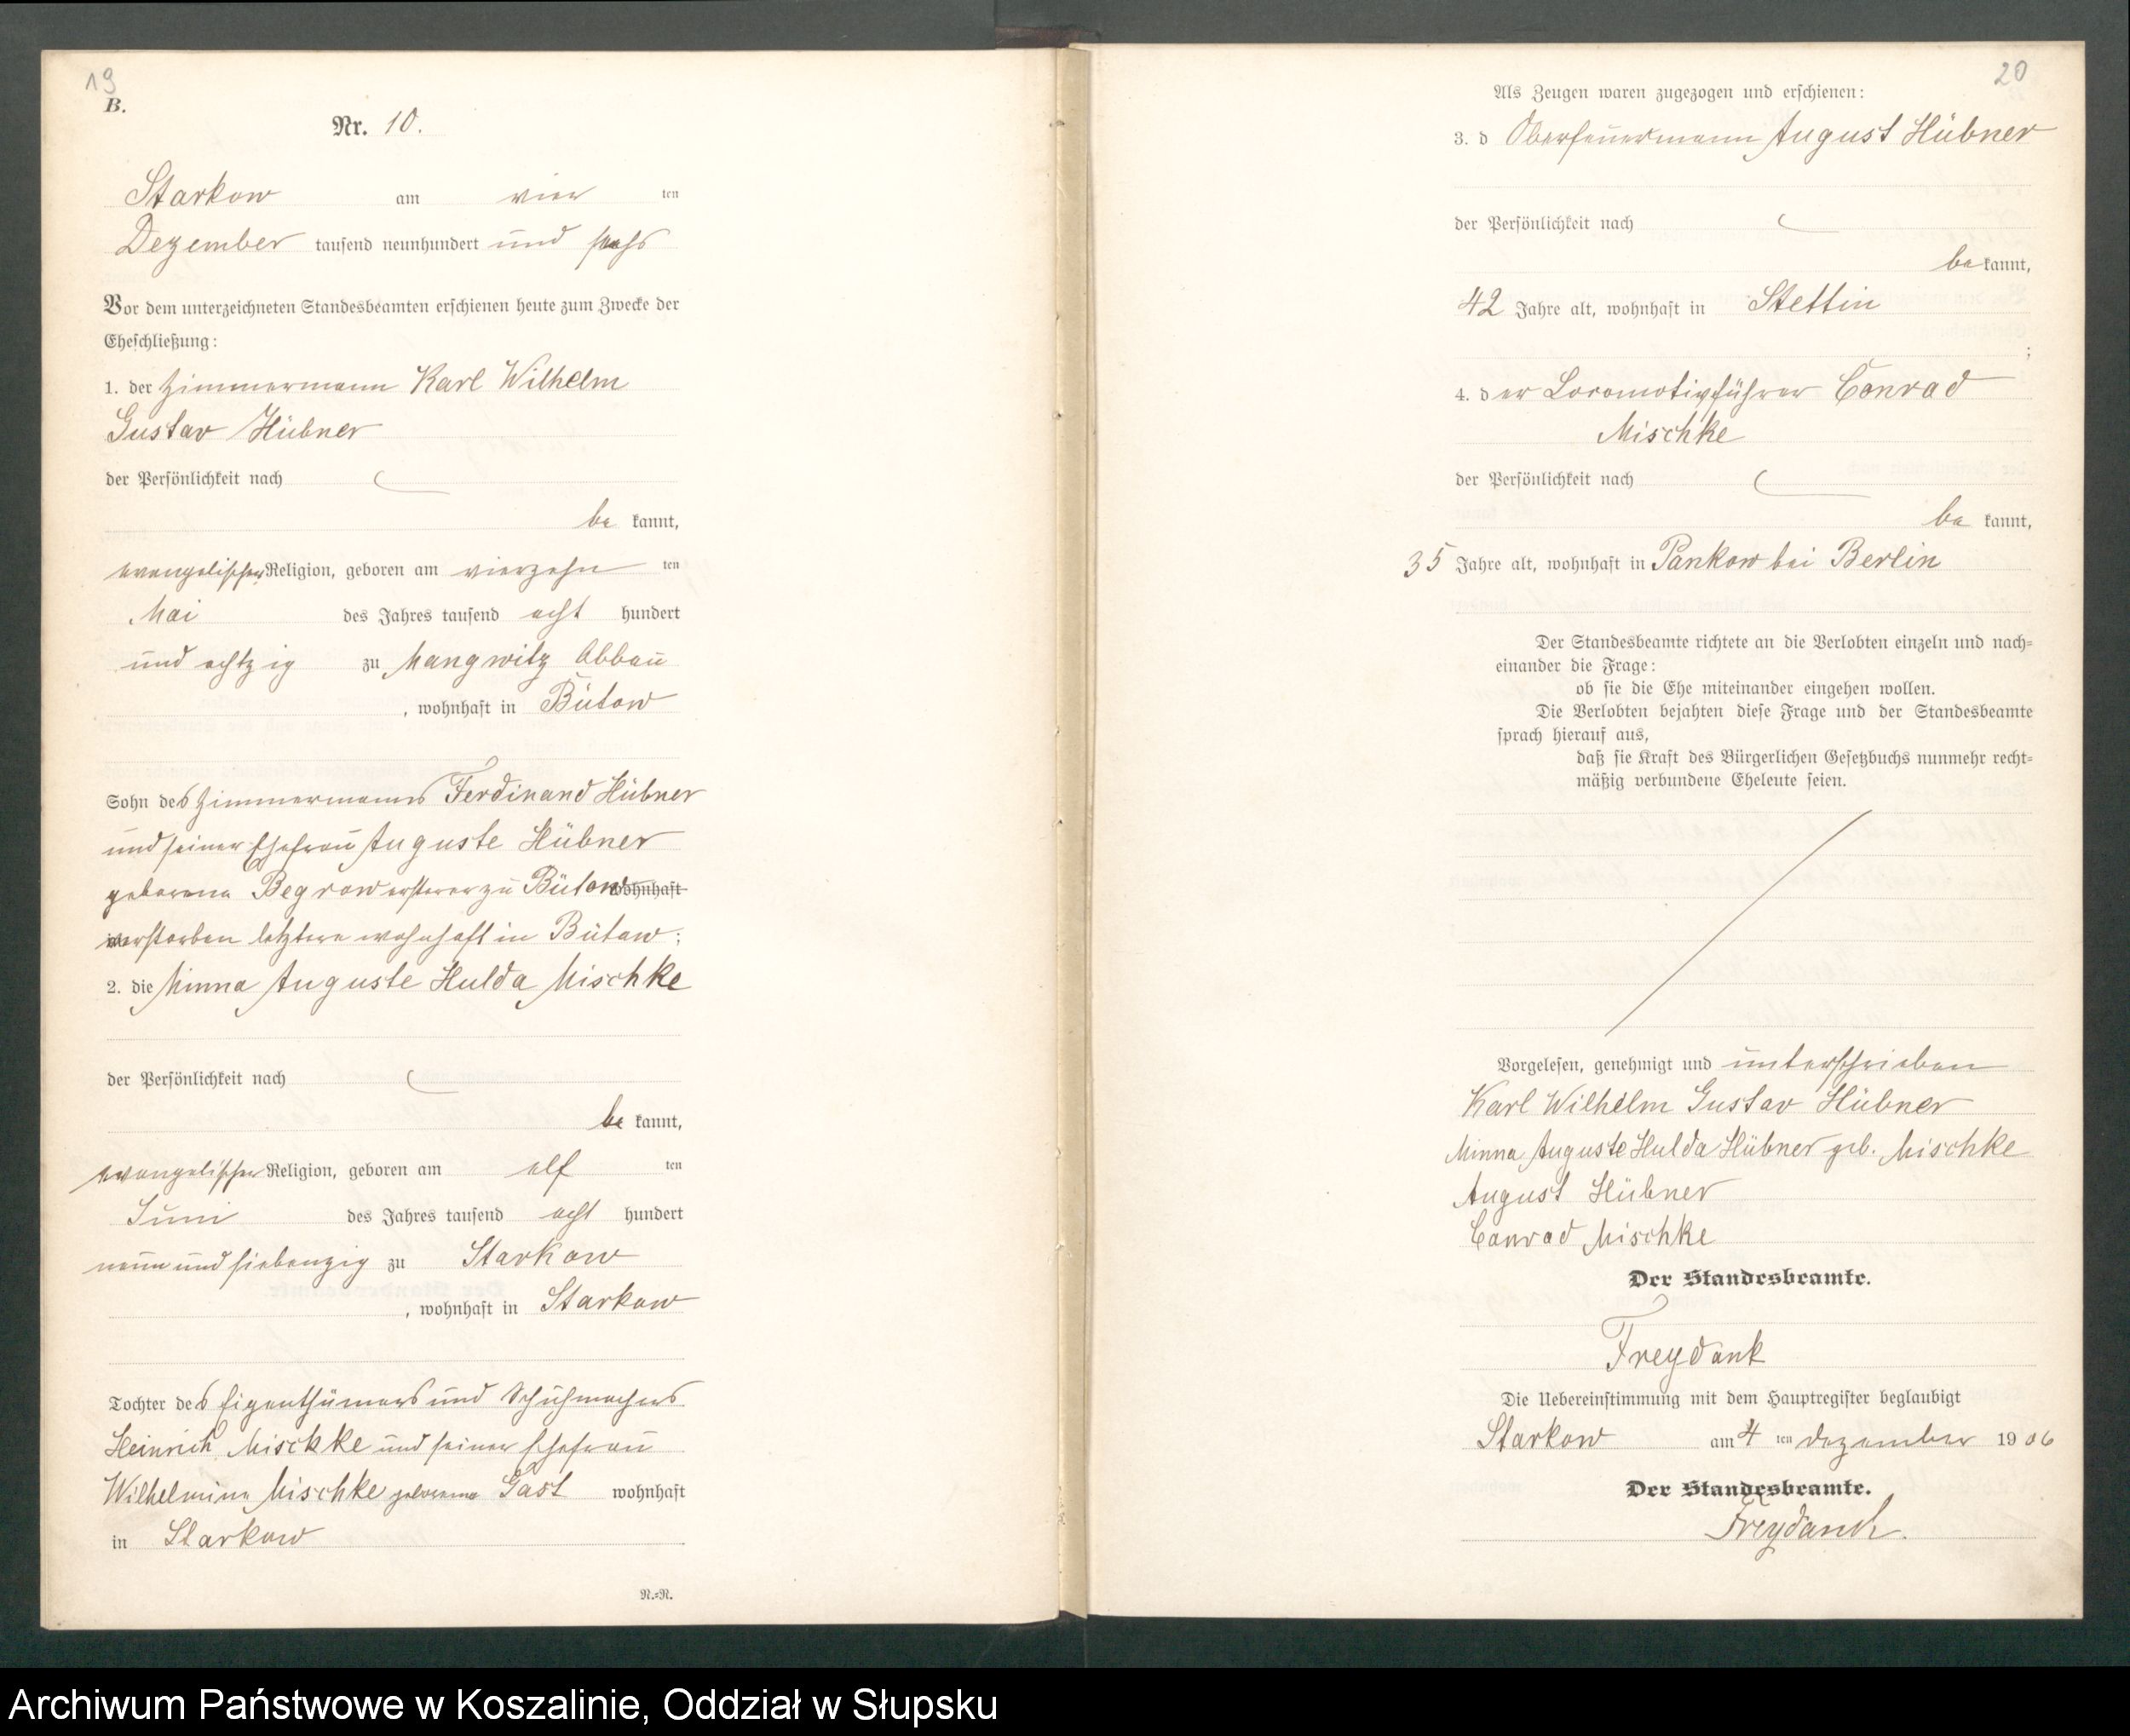 19
B.
Nr. 10.
Starkow am vier ten
Dezember tausend neunhundert und sechs
Vor dem unterzeichneten Standesbeamten erschienen heute zum Zwecke der
Eheschließung:
1. der Zimmermann Karl Wilhelm
Gustav Hübner
der Persönlichkeit nach
be kannt,
evangelischer Religion, geboren am vierzehn ten
Mai des Jahres tausend acht hundert
und achtzig zu Mangwitz Abbau
, wohnhaft in Bütow
Sohn des Zimmermanns Ferdinand Hübner
und seiner Ehefrau Auguste Hübner
geborene Begrow ersterer zu Bütow wohnhaft
verstorben letztere wohnhaft in Bütow;
2. die Minna Auguste Hulda Mischke
der Persönlichkeit nach
be kannt,
evangelischer Religion, geboren am elf ten
Juni des Jahres tausend acht hundert
neun und siebenzig zu Starkow
, wohnhaft in Starkow
Tochter des Eigenthümers und Schuhmachers
Heinrich Mischke und seiner Ehefrau
Wilhelmine Mischke geborene Gast wohnhaft
in Starkow
N.=N.
20
Als Zeugen waren zugezogen und erschienen:
3. d Oberfeuermann August Hübner
der Persönlichkeit nach
be kannt,
42 Jahre alt, wohnhaft in Stettin
;
4. der Locomotivführer Conrad
Mischke
der Persönlichkeit nach
be kannt,
35 Jahre alt, wohnhaft in Pankow bei Berlin
Der Standesbeamte richtete an die Verlobten einzeln und nach=
einander die Frage:
ob sie die Ehe miteinander eingehen wollen.
Die Verlobten bejahten diese Frage und der Standesbeamte
sprach hierauf aus,
daß sie Kraft des Bürgerlichen Gesetzbuchs nunmehr recht=
mäßig verbundene Eheleute seien.
Vorgelesen, genehmigt und unterschrieben
Karl Wilhelm Gustav Hübner
Minna Auguste Hulda Hübner geb. Mischke
August Hübner
Conrad Mischke
Der Standesbeamte.
Freydank
Die Uebereinstimmung mit dem Hauptregister beglaubigt
Starkow am 4 ten Dezember 1906
Der Standesbeamte.
Freydank.
Archiwum Państwowe w Koszalinie, Oddział w Słupsku